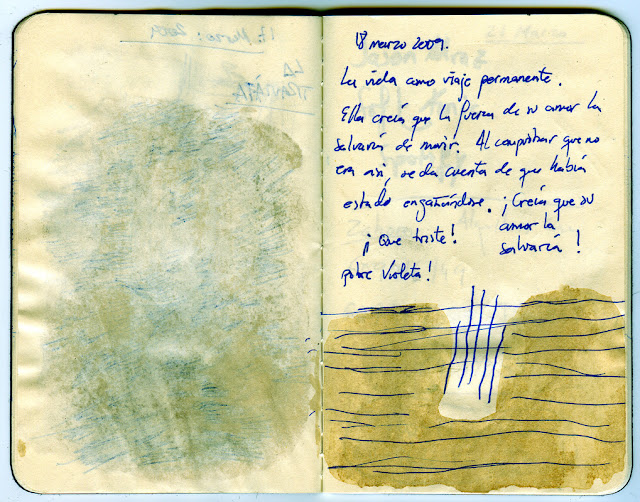 18 marzo 2009.
La vida como viaje permanente.
Ella creía que la fuerza de su amor la
salvaría de morir. Al comprobar que no
era así, se da cuenta de que había
estado engañándose. ¡Creía que su
amor la
salvaría!
¡Que triste!
pobre Violeta!